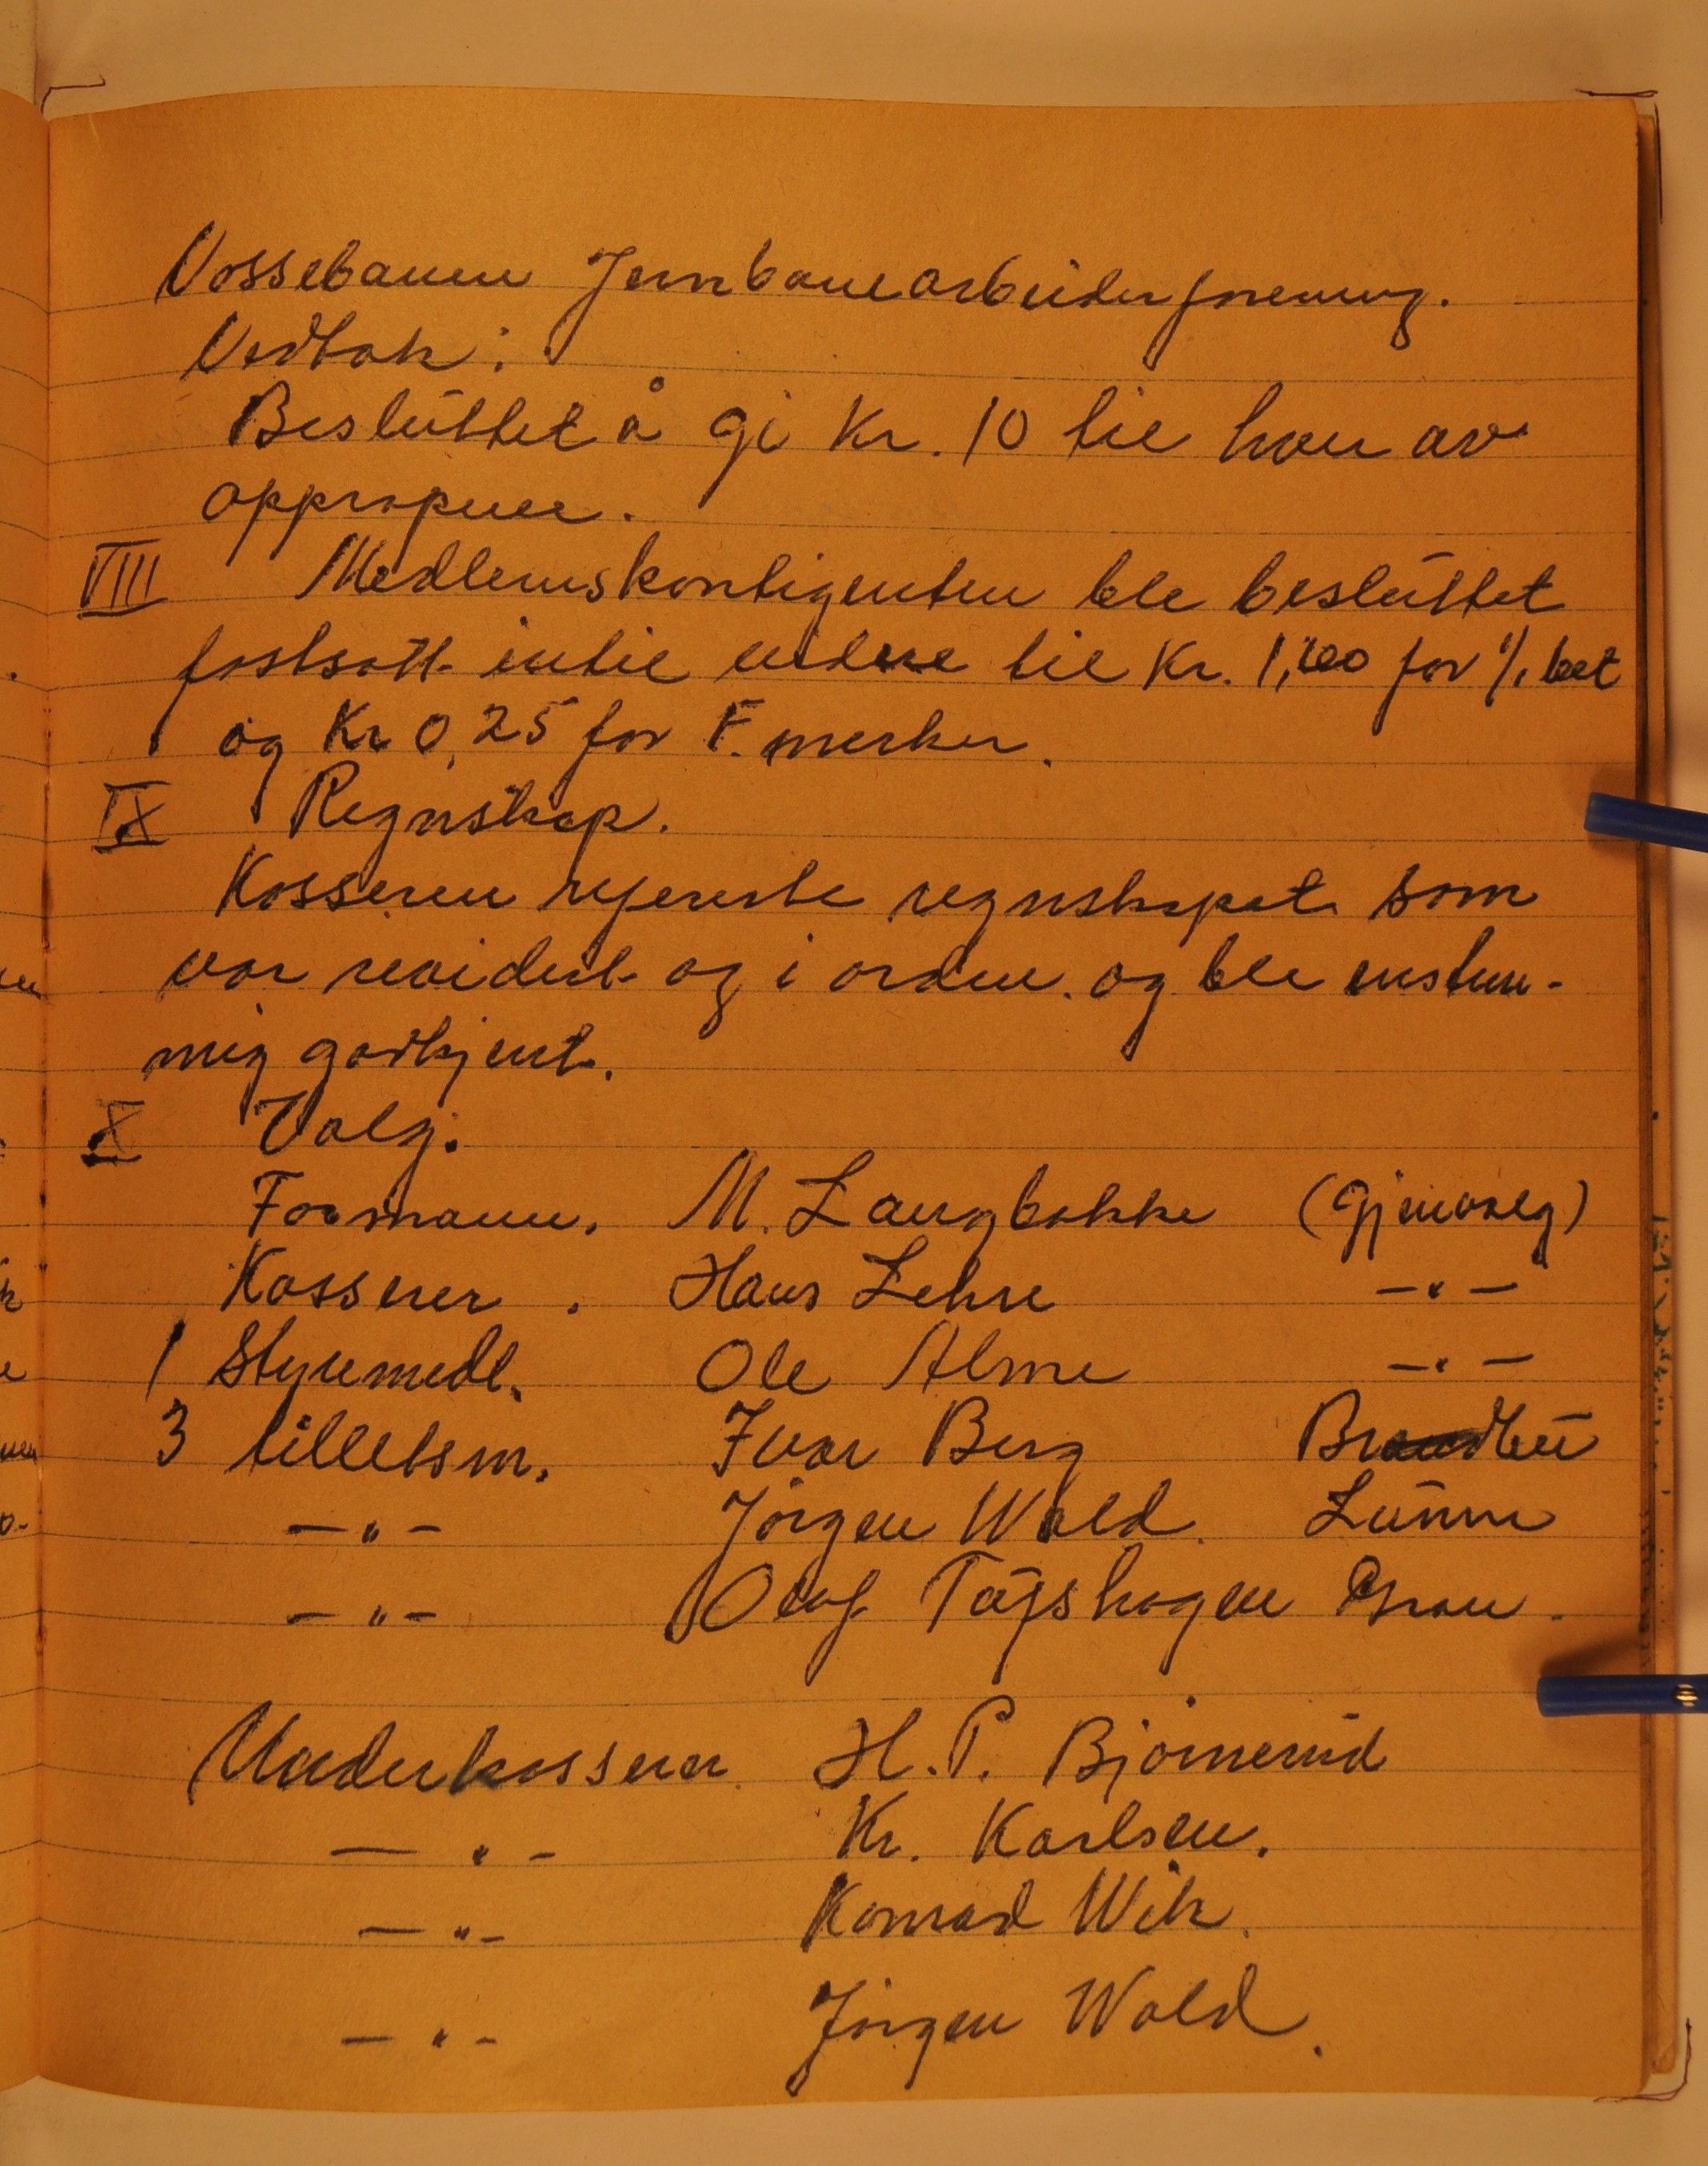 Vossebanen Jernbanearbeiderforening.
Vedtak:
Besluttet å gi Kr. 10 til hver av
oppropene.
VIII Medlemskontigenten ble besluttet
fastsatt intil videre til Kr. 1,00 for 1/1 bet
og Kr 0,25 for F. merker.
IX Regnskap.
Kasseren refererte regnskapet som
var revidert og i orden. og ble enstem-
mig godkjent.
X Valg.
Formann. M. Langbakke (Gjenvalg)
Kasserer. Hans Lehre -"-
1 Styremedl. Ole Alme -"-
3 tillettsm. Ivar Berg
-"- Jørgen Wold. Lunner
-"- Olaf Gran.
Underkasserer H. P. Bjørnerud
-"- Kr. Karlsen.
-"- Konrad Wik.
-"- Jørgen Wold.